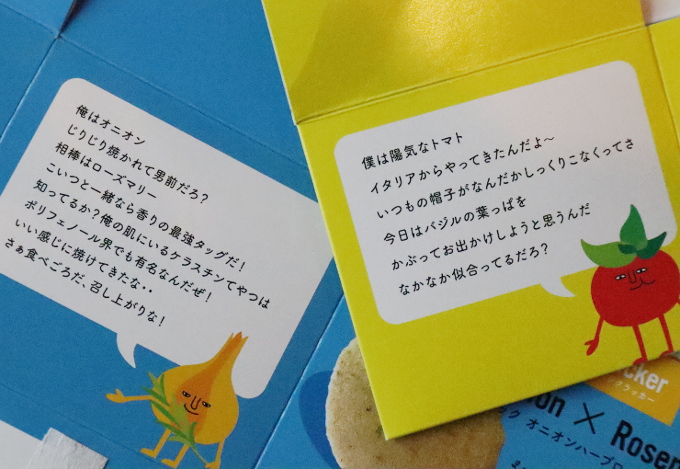 俺はオニオン
じりじり焼かれて男前だろ?
相棒はローズマリー
こいつと一緒なら香りの最強タッグだ!
知ってるか?俺の肌にいるケラスチンてやつは
ポリフェノール界でも有名なんだぜ!
いい感じに焼けてきたな・・
さぁ食べごろだ、召し上がりな!
僕は陽気なトマト
イタリアからやってきたんだよ～
いつもの帽子がなんだかしっくりこなくってさ
今日はバジルの葉っぱを
かぶってお出かけしようと思うんだ
なかなか似合ってるだろ?
cker
クラッカー
on × Rosem
ク オニオンハーブ